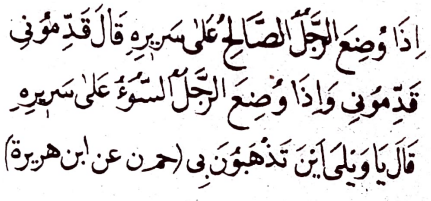 اِذَا وُضِعَ الرَّجُلُ الصَّالِحُ عَلٰى سَرِيرِهِ قَالَ قَدِّمُونِى
قَدِّمُونِى وَاِذَا وُضِعَ الرَّجُلُ السُّوۤءُ عَلٰى سَرِيرِهِ
قَالَ يَا وَيْلَى اَيْنَ تَذْهَبُونَ بِى (حم ن عن ابن هريرة)